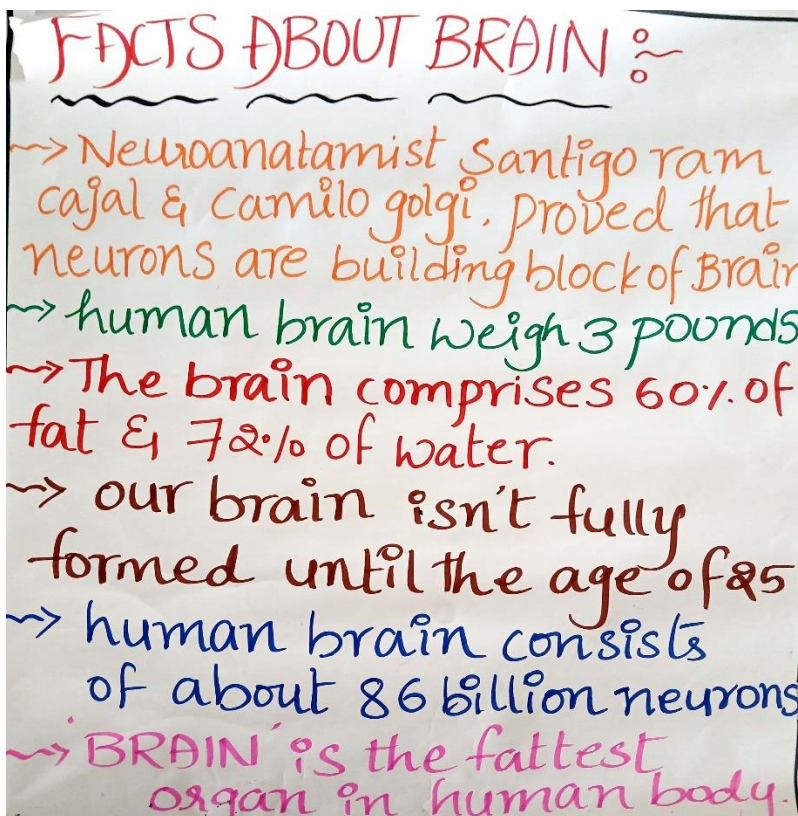 FACTS ABOUT BRAIN :~
~> Neuroanatamist Santigo ram
cajal & Camilo golgi. proved that
neurons are building block of Brain
~> human brain weigh 3 pounds
~> The brain comprises 60% of
fat & 72% of water.
~> our brain isn't fully
formed until the age of 25
~> human brain consists
of about 86 billion neurons
~> 'BRAIN' is the fattest
organ in human body.